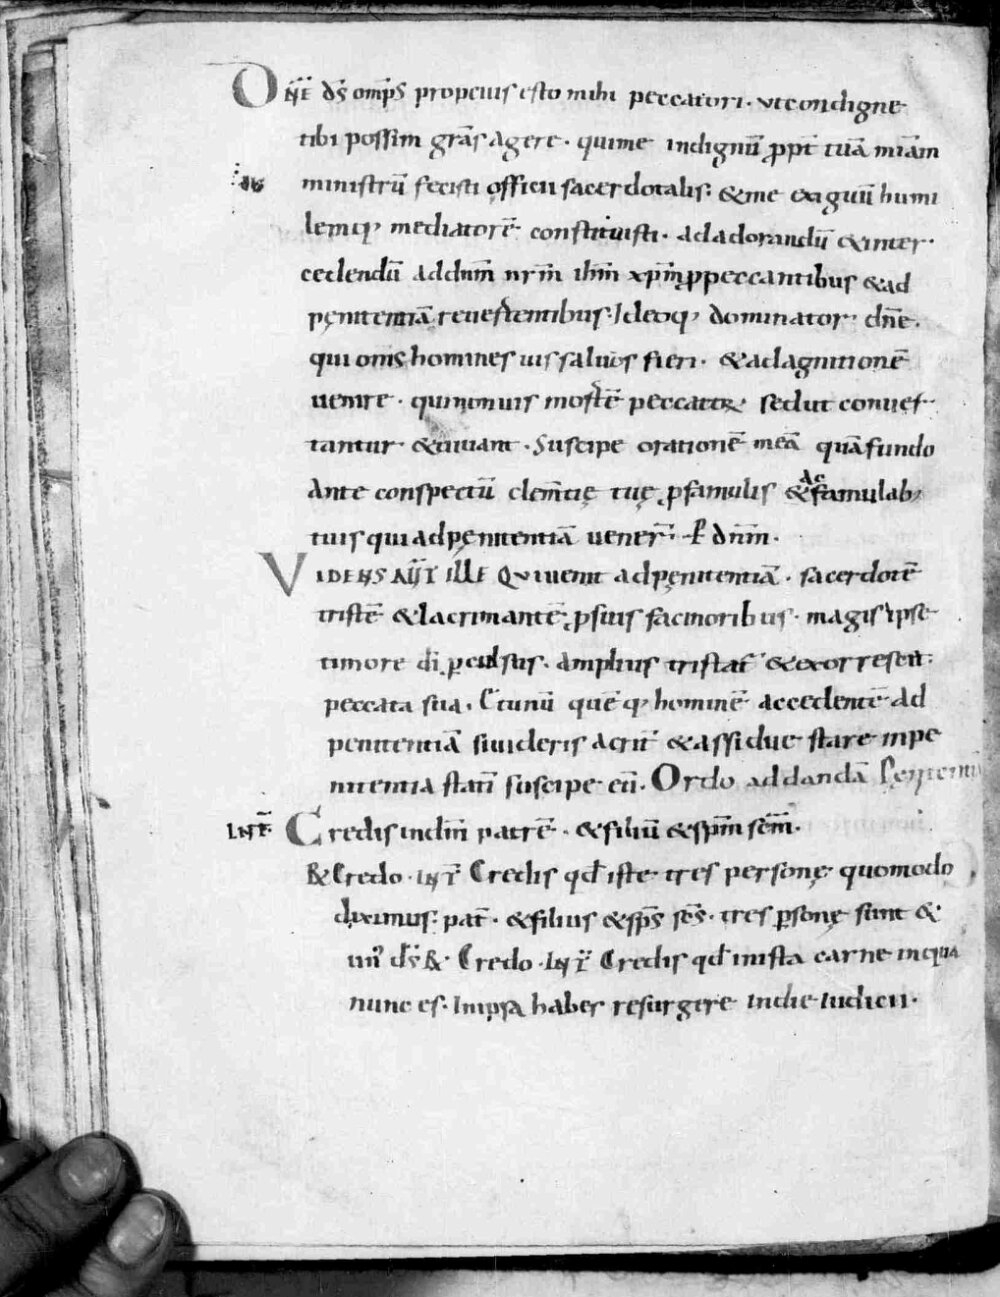 Dñe dš omp̄s propcius esto mihi peccatori · ut condigne
tibi possim grās agere · qui me indignū ꝓpt tuā miām
ministrū fecisti officii sacerdotalis : & me exiguū humi
lemq; mediatorē constituisti · ad adorandū & inter
cedendū ad dnm̄ nrm̄ ihm̄ xpm̄ ꝓ peccantibus & ad
pęnitentiā revertentibus · Ideoq; dominator dn̄e ·
qui om̄s homines vis salvos fieri · & ad agnitionē
uenire · qui non uis mortē peccatorꝝ sed ut conuer
tantur & uiuant · Suscipe orationē meā quā fundo
Ante conspectū clem̄tię tuę ꝓ famulis & Ac famulab;
tuis qui ad pęnitentiā uener̄ · P dnm̄ ·
VIDENS AUT ILLE Qui uenit ad pęnitentiā · sacerdotē
tristē & lacrimantē ꝓ suis facinoribus · magis ipse
timore di ꝑculsus · Amplius tristat̄ & exorrescit :
peccata sua · Et unū quēq; hominē accedentē Ad
penitentiā si uideris acrit̄ & assidue stare in pe
nitentia stati suscipe eū · Ordo ad dandā Penitenti
INT̄ Credis in dm̄ patrē · & filiū & spm̄ scm̄ ·
R̄ Credo · INT̄ Credis qd iste tres personę quomodo
diximus : pat̄ · & filius & sps̄ scs̄ · tres ꝑsonę sunt &
un' ds̄ R̄ · Credo · INT̄ Credis qd in ista carne in qua
nunc es · In ipsa habes resurgere In die Iudicii ·